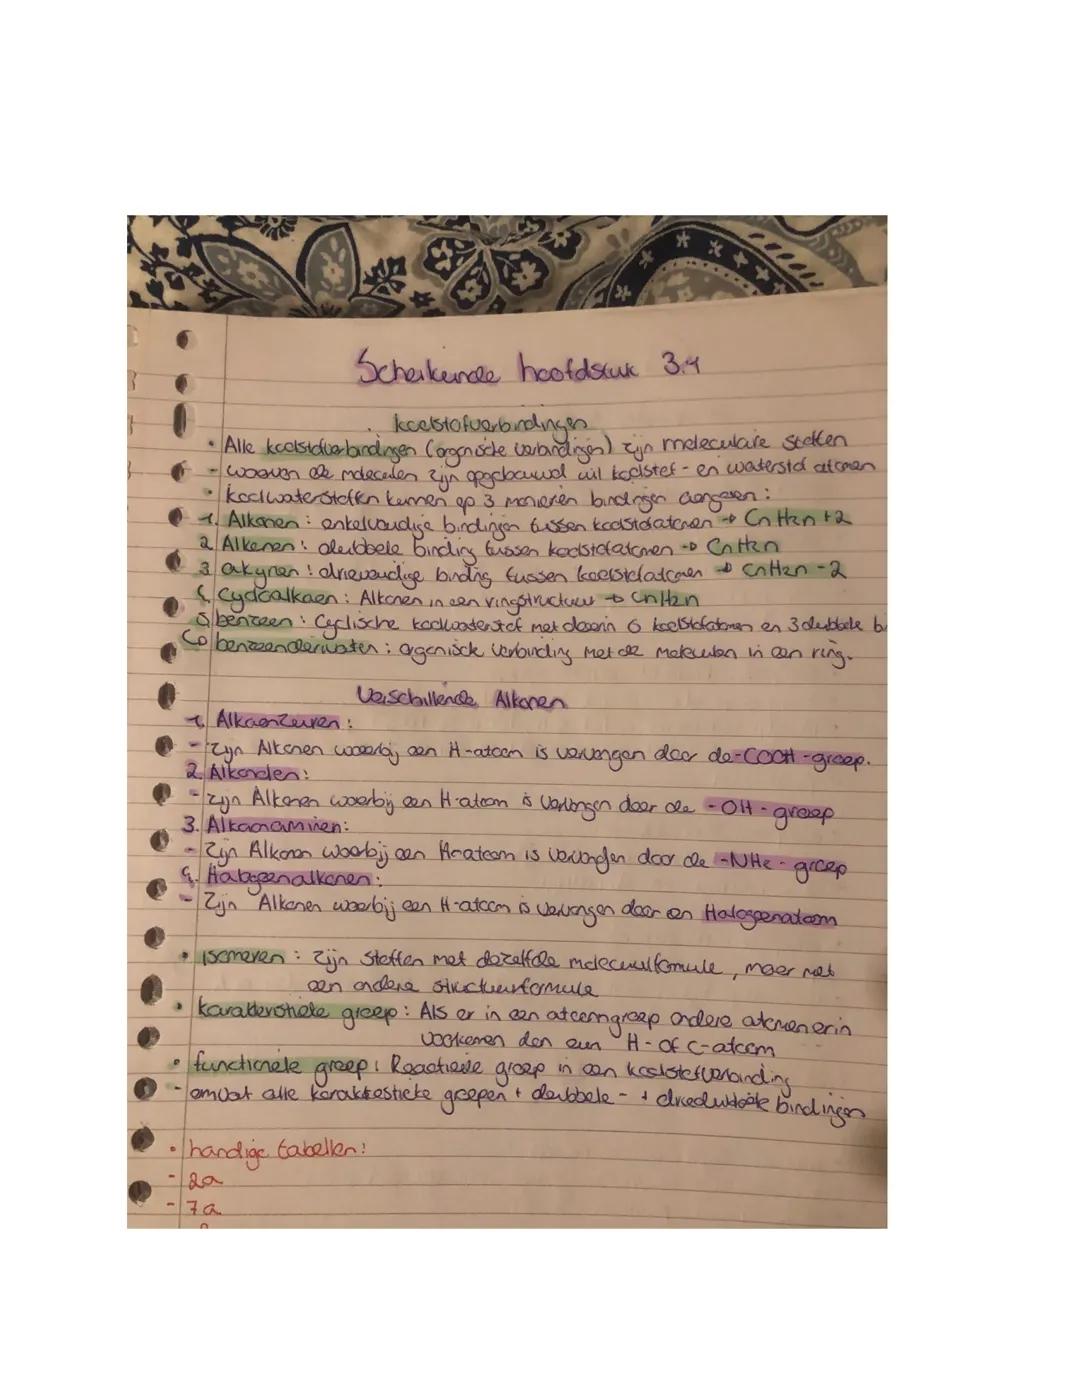 Scheikunde hoofdstuk 3.4
koolstofverbindingen
• Alle koolstofverbindingen (organische verbindingen) zijn moleculaire stoffen
- waarvan de moleculen zijn opgebouwd uit koolstof- en waterstof atomen
• koolwaterstoffen kunnen op 3 manieren bindingen aangaan:
1. Alkanen: enkelvoudige bindingen tussen koolstofatomen → CnH2n+2
2. Alkenen: dubbele binding tussen koolstofatomen → CnH2n
3. alkynen: drievoudige binding tussen koolstofatomen → CnH2n-2
4. Cycloalkaen: Alkanen in een ringstructuur → CnH2n
5. benzeen: Cyclische koolwaterstof met daarin 6 koolstofatomen en 3 dubbele b
6. benzeenderivaten: organisch verbinding met de moleculen in een ring.
Verschillende Alkanen
1. Alkaanzuren:
- zijn Alkanen waarbij een H-atoom is vervangen door de -COOH-groep.
2. Alkanolen:
- zijn Alkanen waarbij een H-atoom is vervangen door de -OH-groep
3. Alkanaminen:
- Zijn Alkanen waarbij een H-atoom is vervangen door de -NH2-groep
4. Halogeenalkanen:
- Zijn Alkanen waarbij een H-atoom is vervangen door een Halogeenatoom
• isomeren: Zijn stoffen met dezelfde molecuulformule, maar met
een andere structuurformule
• karakteristieke groep: Als er in een atoomgroep andere atomen erin
voorkomen dan een H- of C-atoom
• functionele groep: Reactieve groep in een koolstofverbinding
- omvat alle karakteristieke groepen + dubbele- + bindingen
• handige tabellen:
- 2a
- 7a